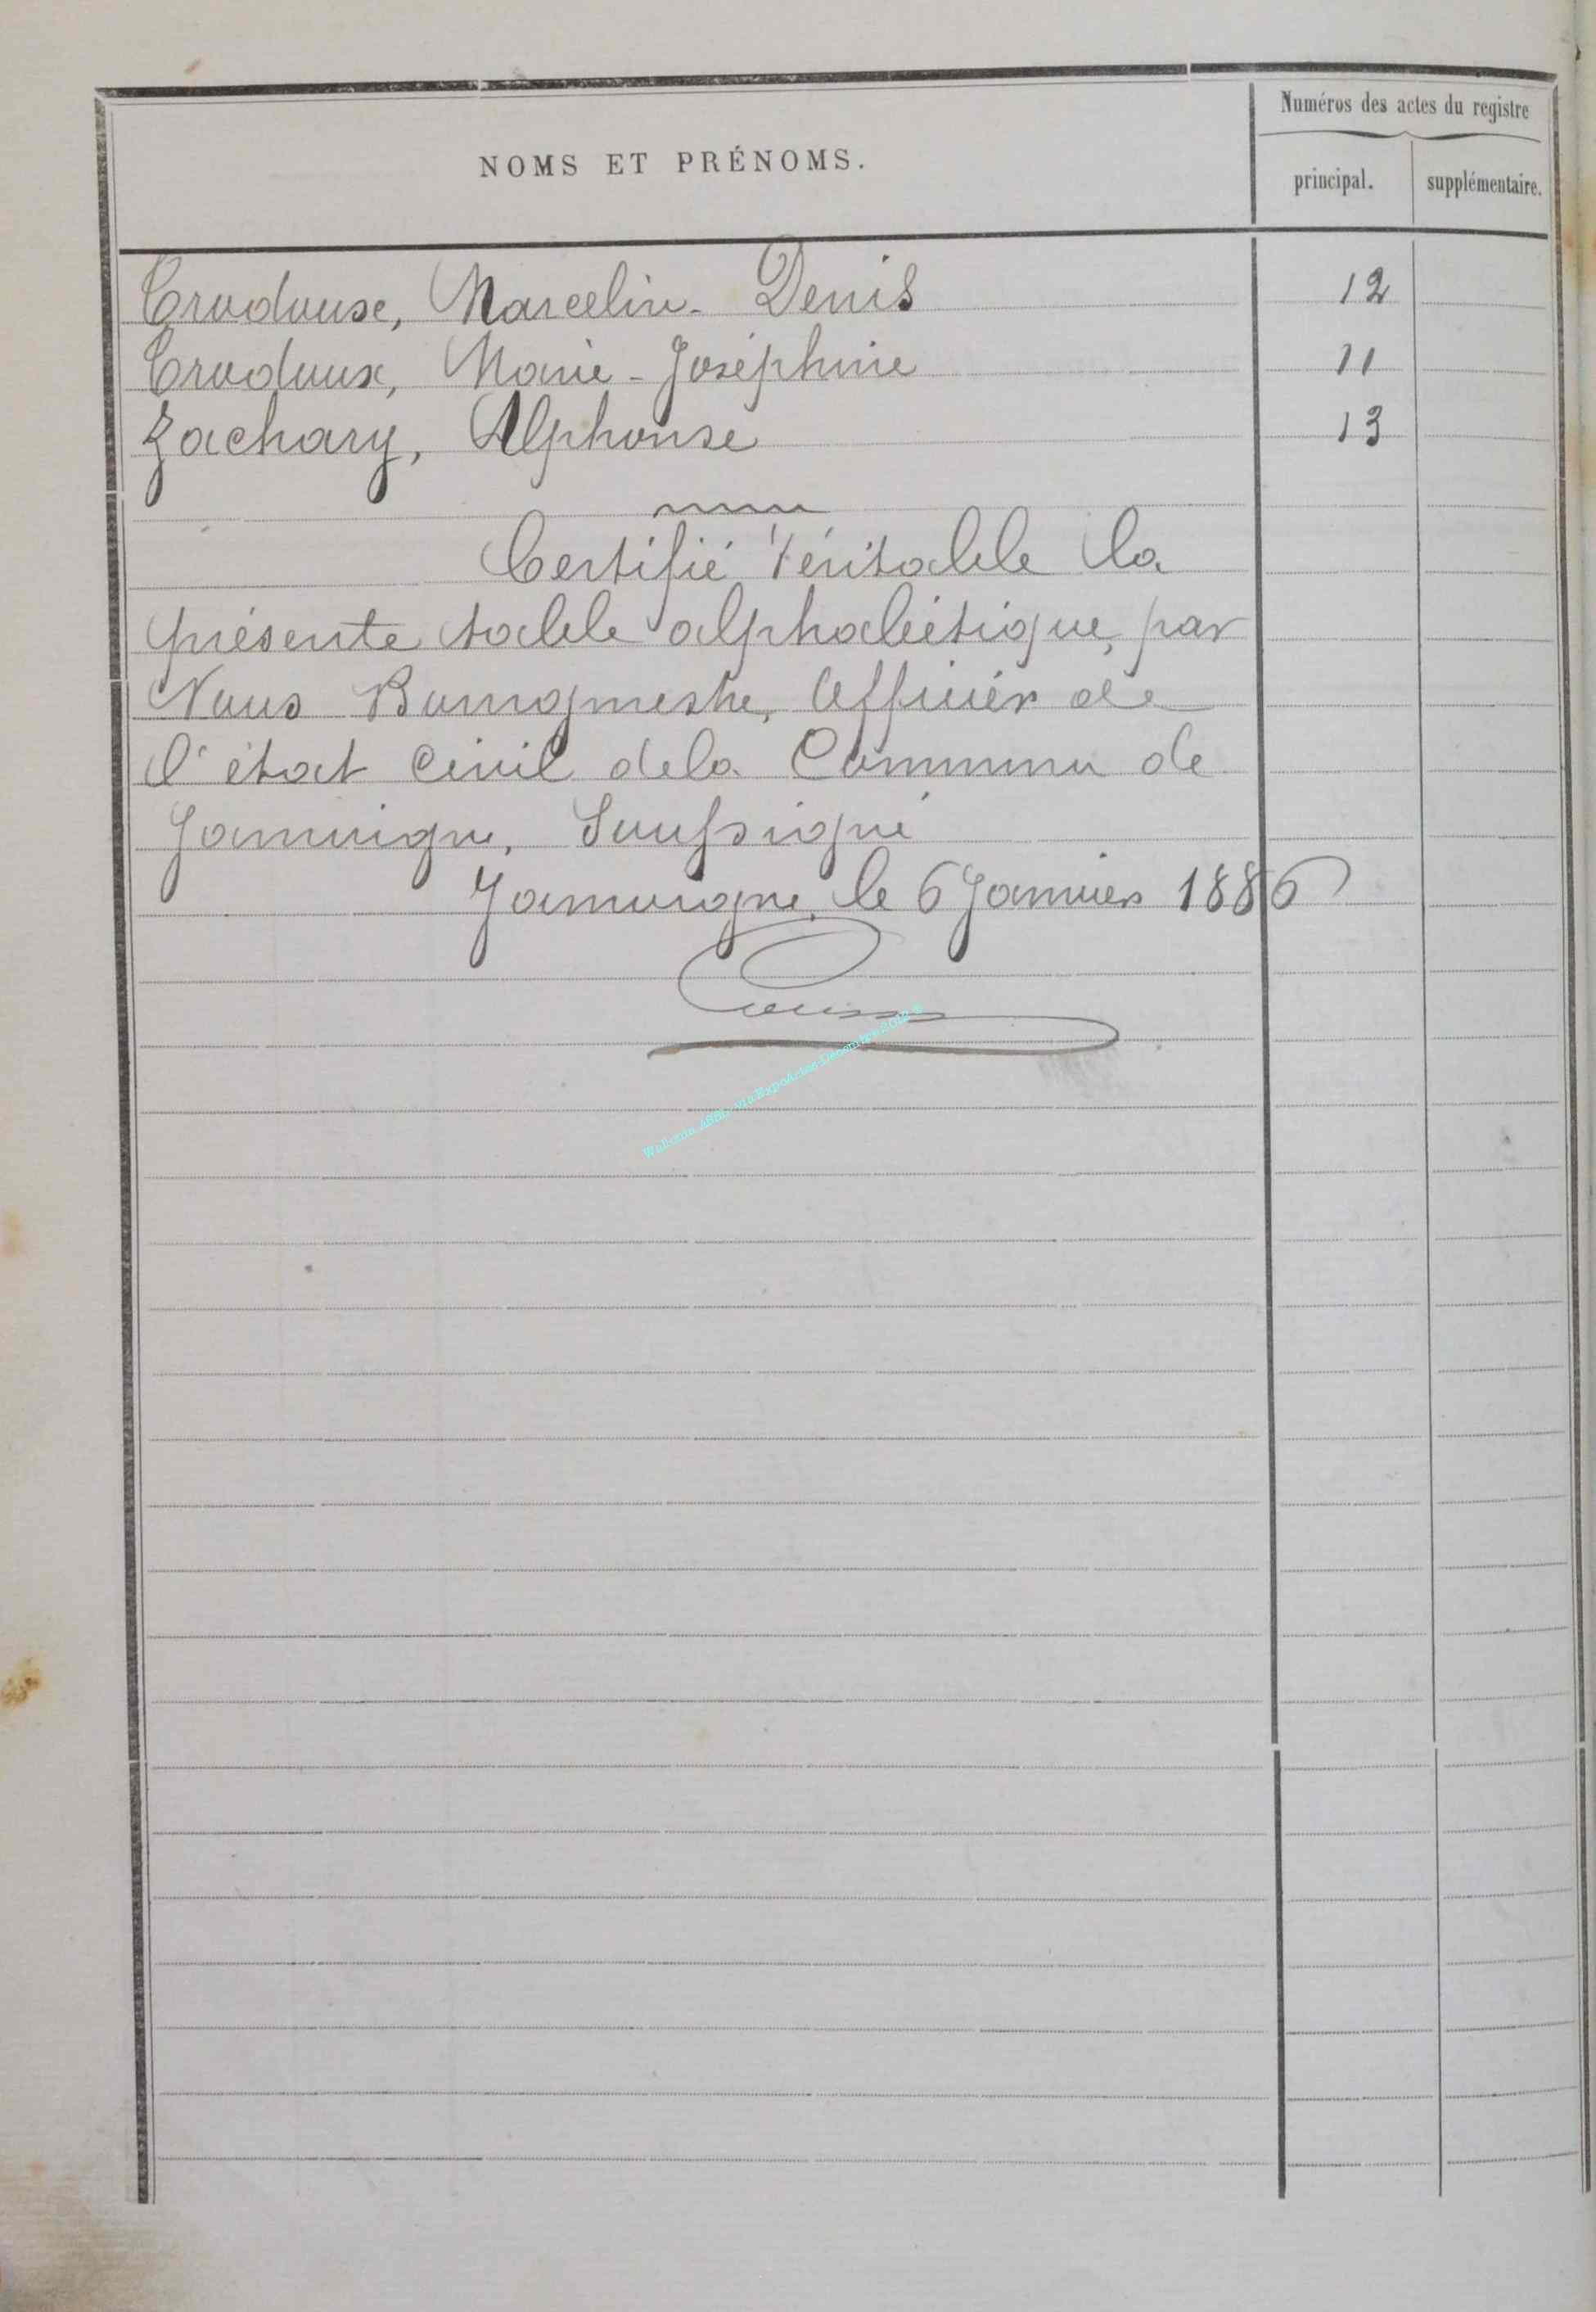 Numéros des actes du registre
NOMS ET PRÉNOMS.
principal. supplémentaire.
Crudoux, Marcelin-Denis 12
Crudoux, Marie-Joséphine 11
Zachary, Alphonse 13
Certifié Véritable la
présente table alphabétique, par
Nous Bourgmestre, Officier de
l'état Civil de la Commune de
Jamoigne, Soussigné
Jamoigne, le 6 Janvier 1886